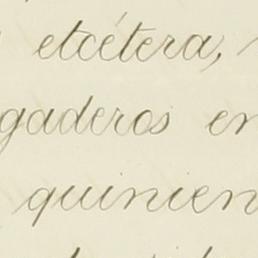 etcétera,
gaderos en
quinien